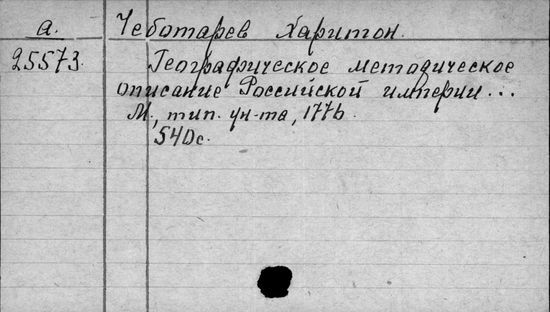 а. Чеботарев Харитон.
25573. Географическое методическое
описание Российской империи...
М., тип. ун-та, 1776.
540с.